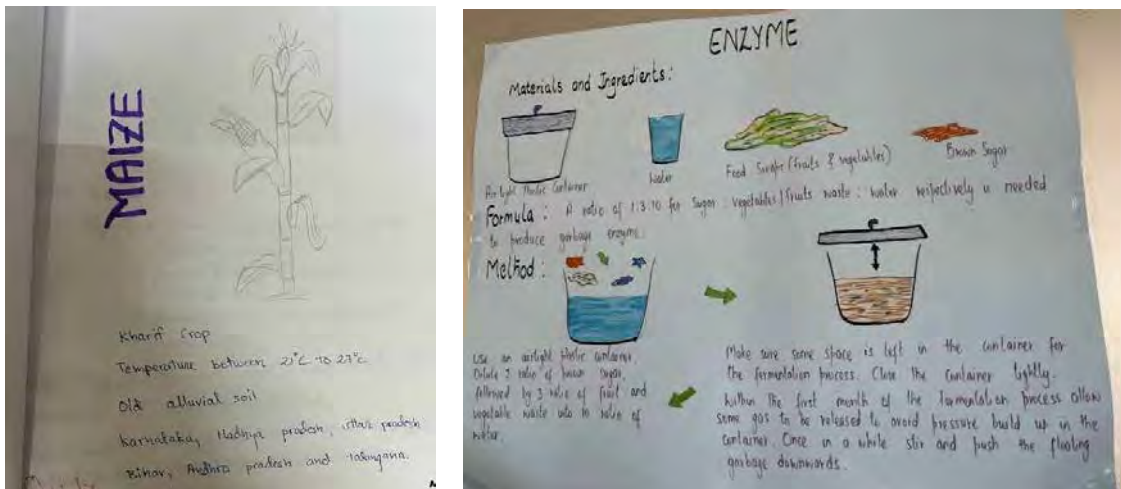 MAIZE
Kharif Crop
Temperature between 21°C to 27°C
Old alluvial soil
Karnataka, Madhya pradesh, Uttar pradesh
Bihar, Andhra pradesh and Telangana.
ENZYME
Materials and Ingredients:
Air tight Plastic Container
Water
Food Scraps (fruits & vegetables)
Brown Sugar
Formula : A ratio of 1:3:10 for sugar : vegetables/fruits waste : water respectively is needed
to produce garbage enzyme.
Method :
Use an airtight plastic container.
ratio of brown sugar,
followed by 3 ratio of fruit and
vegetable waste into 10 ratio of
water.
Make sure some space is left in the container for
the fermentation process. Close the container tightly.
Within the first month of the fermentation process allow
some gas to be released to avoid pressure build up in the
container. Once in a while stir and push the floating
garbage downwards.